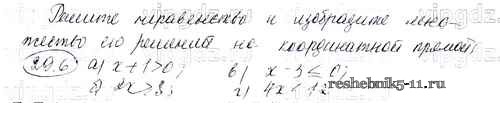 Решите неравенство и изобразите мно-
жество его решений на координатной прямой:
29.6 а) x+1>0; в) x-3≤0;
б) 2x≥3; г) 4x<12.
reshebnik5-11.ru